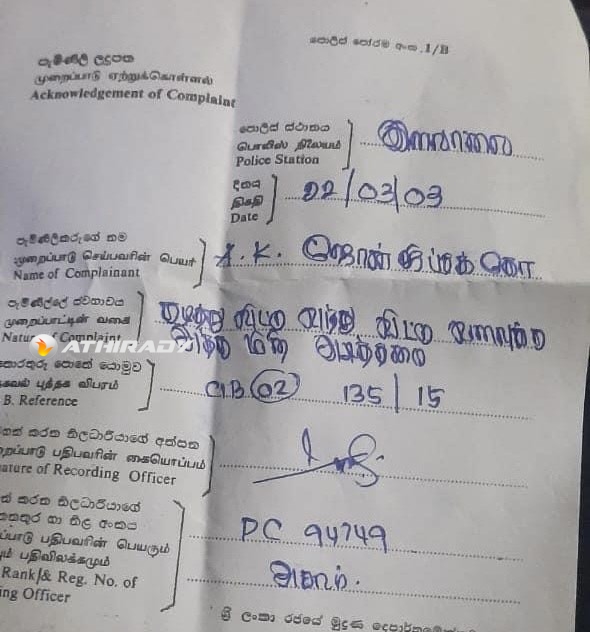 පොලිස් පෝරම අංක. 1/B
පැමිණිලි ලදුපත
முறைப்பாடு ஏற்றுக்கொள்ளல்
Acknowledgement of Complaint
පොලිස් ස්ථානය
பொலிஸ் நிலையம்
Police Station
இளவாலை
දිනය
திகதி
Date
22/03/03
පැමිණිලිකරුගේ නම
முறைப்பாடு செய்பவரின் பெயர்
Name of Complainant
A. K. ஜொன்
පැමිණිල්ලේ ස්වභාවය
முறைப்பாட்டின் வகை
Nature Complaint
குடித்து விட்டு வந்து விட்டு
ATHIRADY
තොරතුරු පොතේ යොමුව
தகவல் புத்தக விபரம்
B. Reference
CIB (02) 135/15
කරන නිලධාරියාගේ අත්සන
பதிபவரின் கையொப்பம்
ature of Recording Officer
කරන නිලධාරියාගේ
හා නිල අංකය
பதிபவரின் பெயரும்
பதிவிலக்கமும்
Rank/& Reg. No. of
ing Officer
PC 94749
ශ්‍රී ලංකා රජයේ මුද්‍රණ